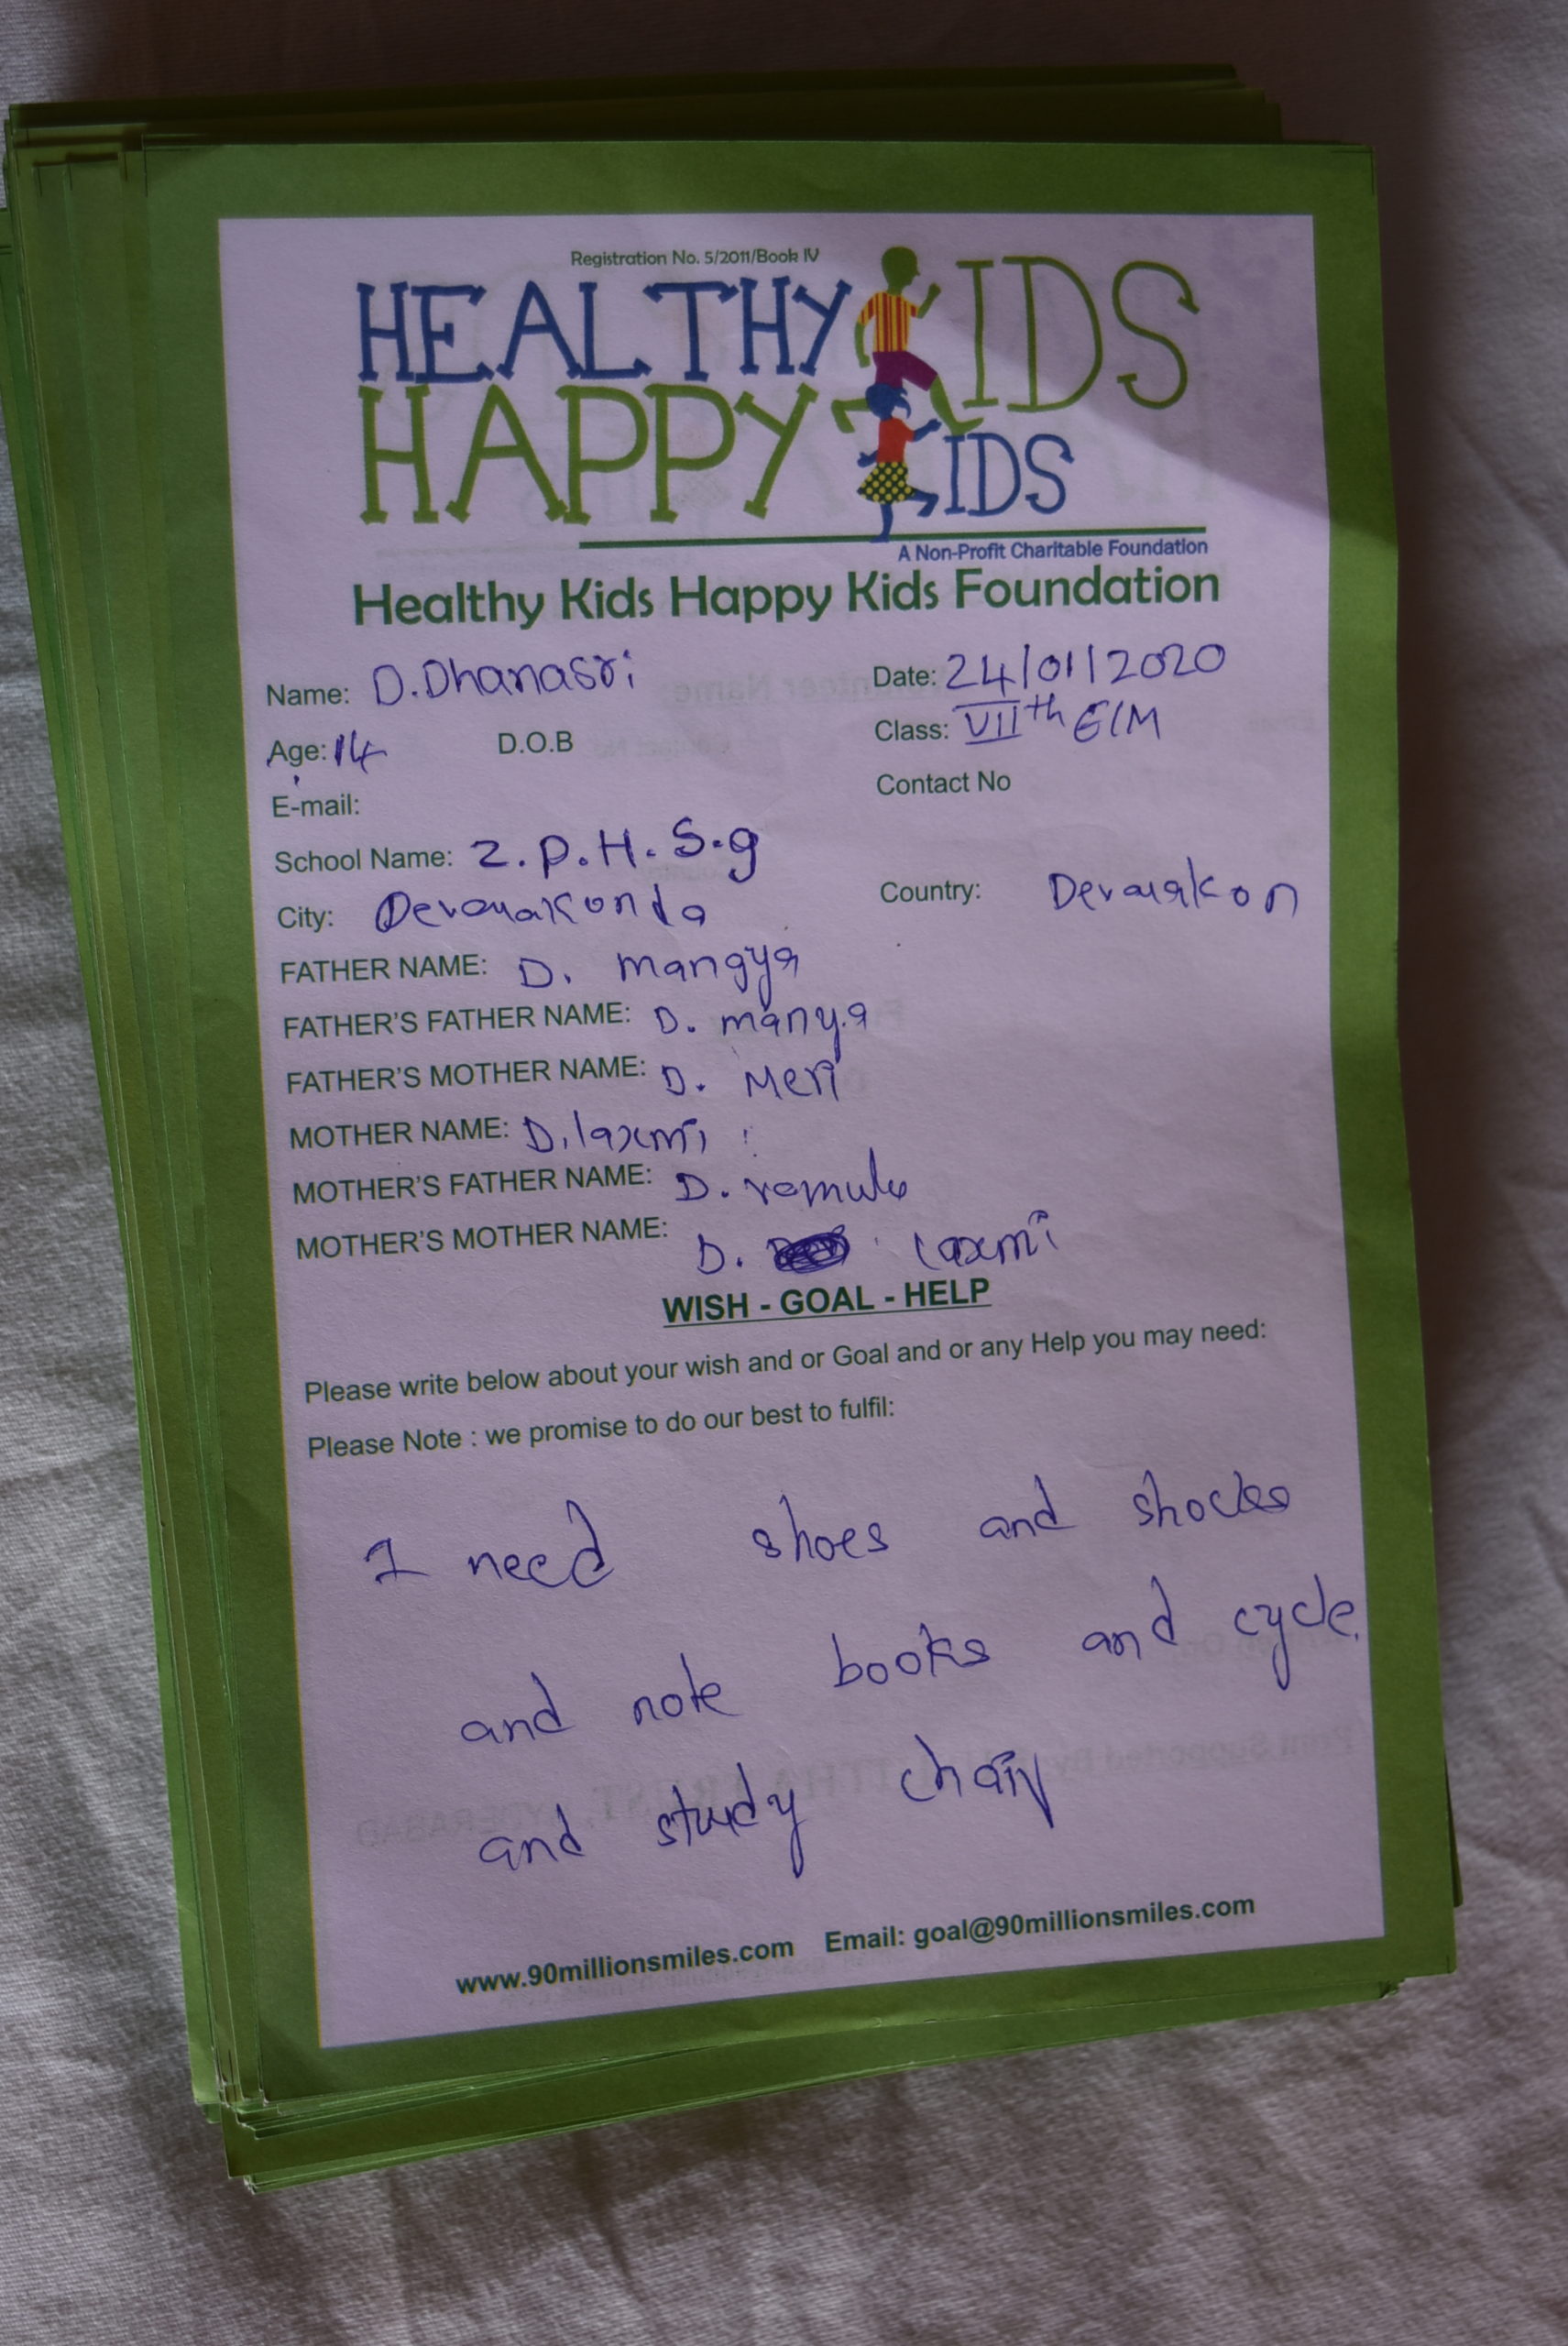 Registration No. 5/2011/Book IV
HEALTHY KIDS
HAPPY KIDS
A Non-Profit Charitable Foundation
Healthy Kids Happy Kids Foundation
Name: D.Dhanasri Date: 24/01/2020
Age: 14 D.O.B Class: VIIth E/M
E-mail: Contact No
School Name: Z.P.H.S.g
City: Devarakonda Country: Devarakon
FATHER NAME: D. mangya
FATHER'S FATHER NAME: D. manya
FATHER'S MOTHER NAME: D. Meri
MOTHER NAME: D.laxmi
MOTHER'S FATHER NAME: D. ramulu
MOTHER'S MOTHER NAME: D. laxmi
WISH - GOAL - HELP
Please write below about your wish and or Goal and or any Help you may need:
Please Note : we promise to do our best to fulfil:
I need shoes and shocks
and note books and cycle.
and study chair
www.90millionsmiles.com Email: goal@90millionsmiles.com